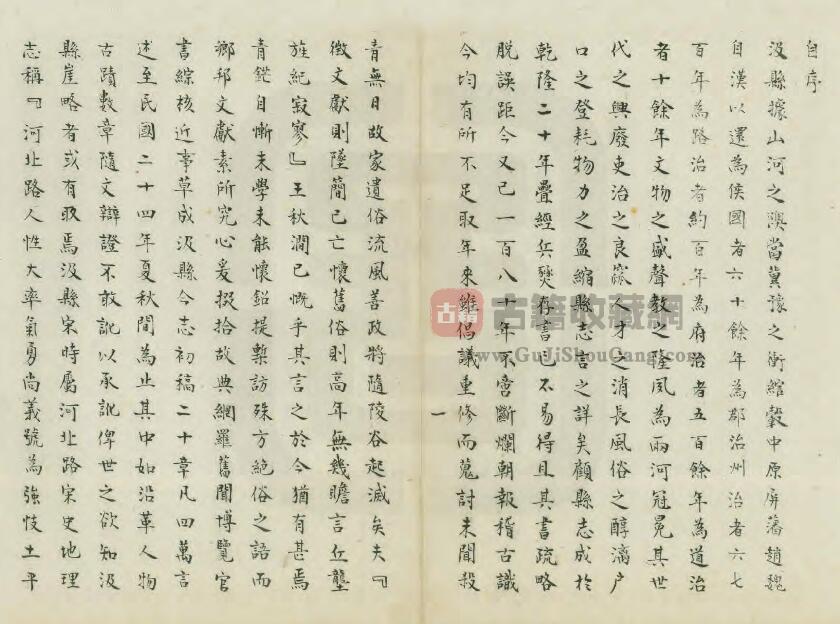 自序
汲縣據山河之隩當冀豫之衝綰轂中原屏藩趙魏
自漢以還為侯國者六十餘年為郡治州治者六七
百年為路治者約百年為府治者五百餘年為道治
者十餘年文物之盛聲教之隆夙為兩河冠冕其世
代之興廢吏治之良窳人才之消長風俗之醇漓戶
口之登耗物力之盈縮縣志言之詳矣顧縣志成於
乾隆二十年疊經兵燹存書已不易得且其書疏略
脫誤距今又已一百八十年不啻斷爛朝報稽古識
今均有所不足取年來雖倡議重修而蒐討未聞殺
一
青無日故家遺俗流風善政將隨陵谷起滅矣夫『
徵文獻則墜簡已亡懷舊俗則高年無幾瞻言丘壟
旌紀寂寥』王秋澗已慨乎其言之於今猶有甚焉
青鋩自慚末學未能懷鉛提槧訪殊方絕俗之語而
鄉邦文獻素所究心爰掇拾故典網羅舊聞博覽官
書綜核近事草成汲縣今志初稿二十章凡四萬言
述至民國二十四年夏秋間為止其中如沿革人物
古蹟數章隨文辯證不敢訛以承訛俾世之欲知汲
縣崖略者或有取焉汲縣宋時屬河北路宋史地理
志稱『河北路人性大率氣勇尚義號為強忮土平
古籍
古籍收藏網
www.GuJiShouCang.com